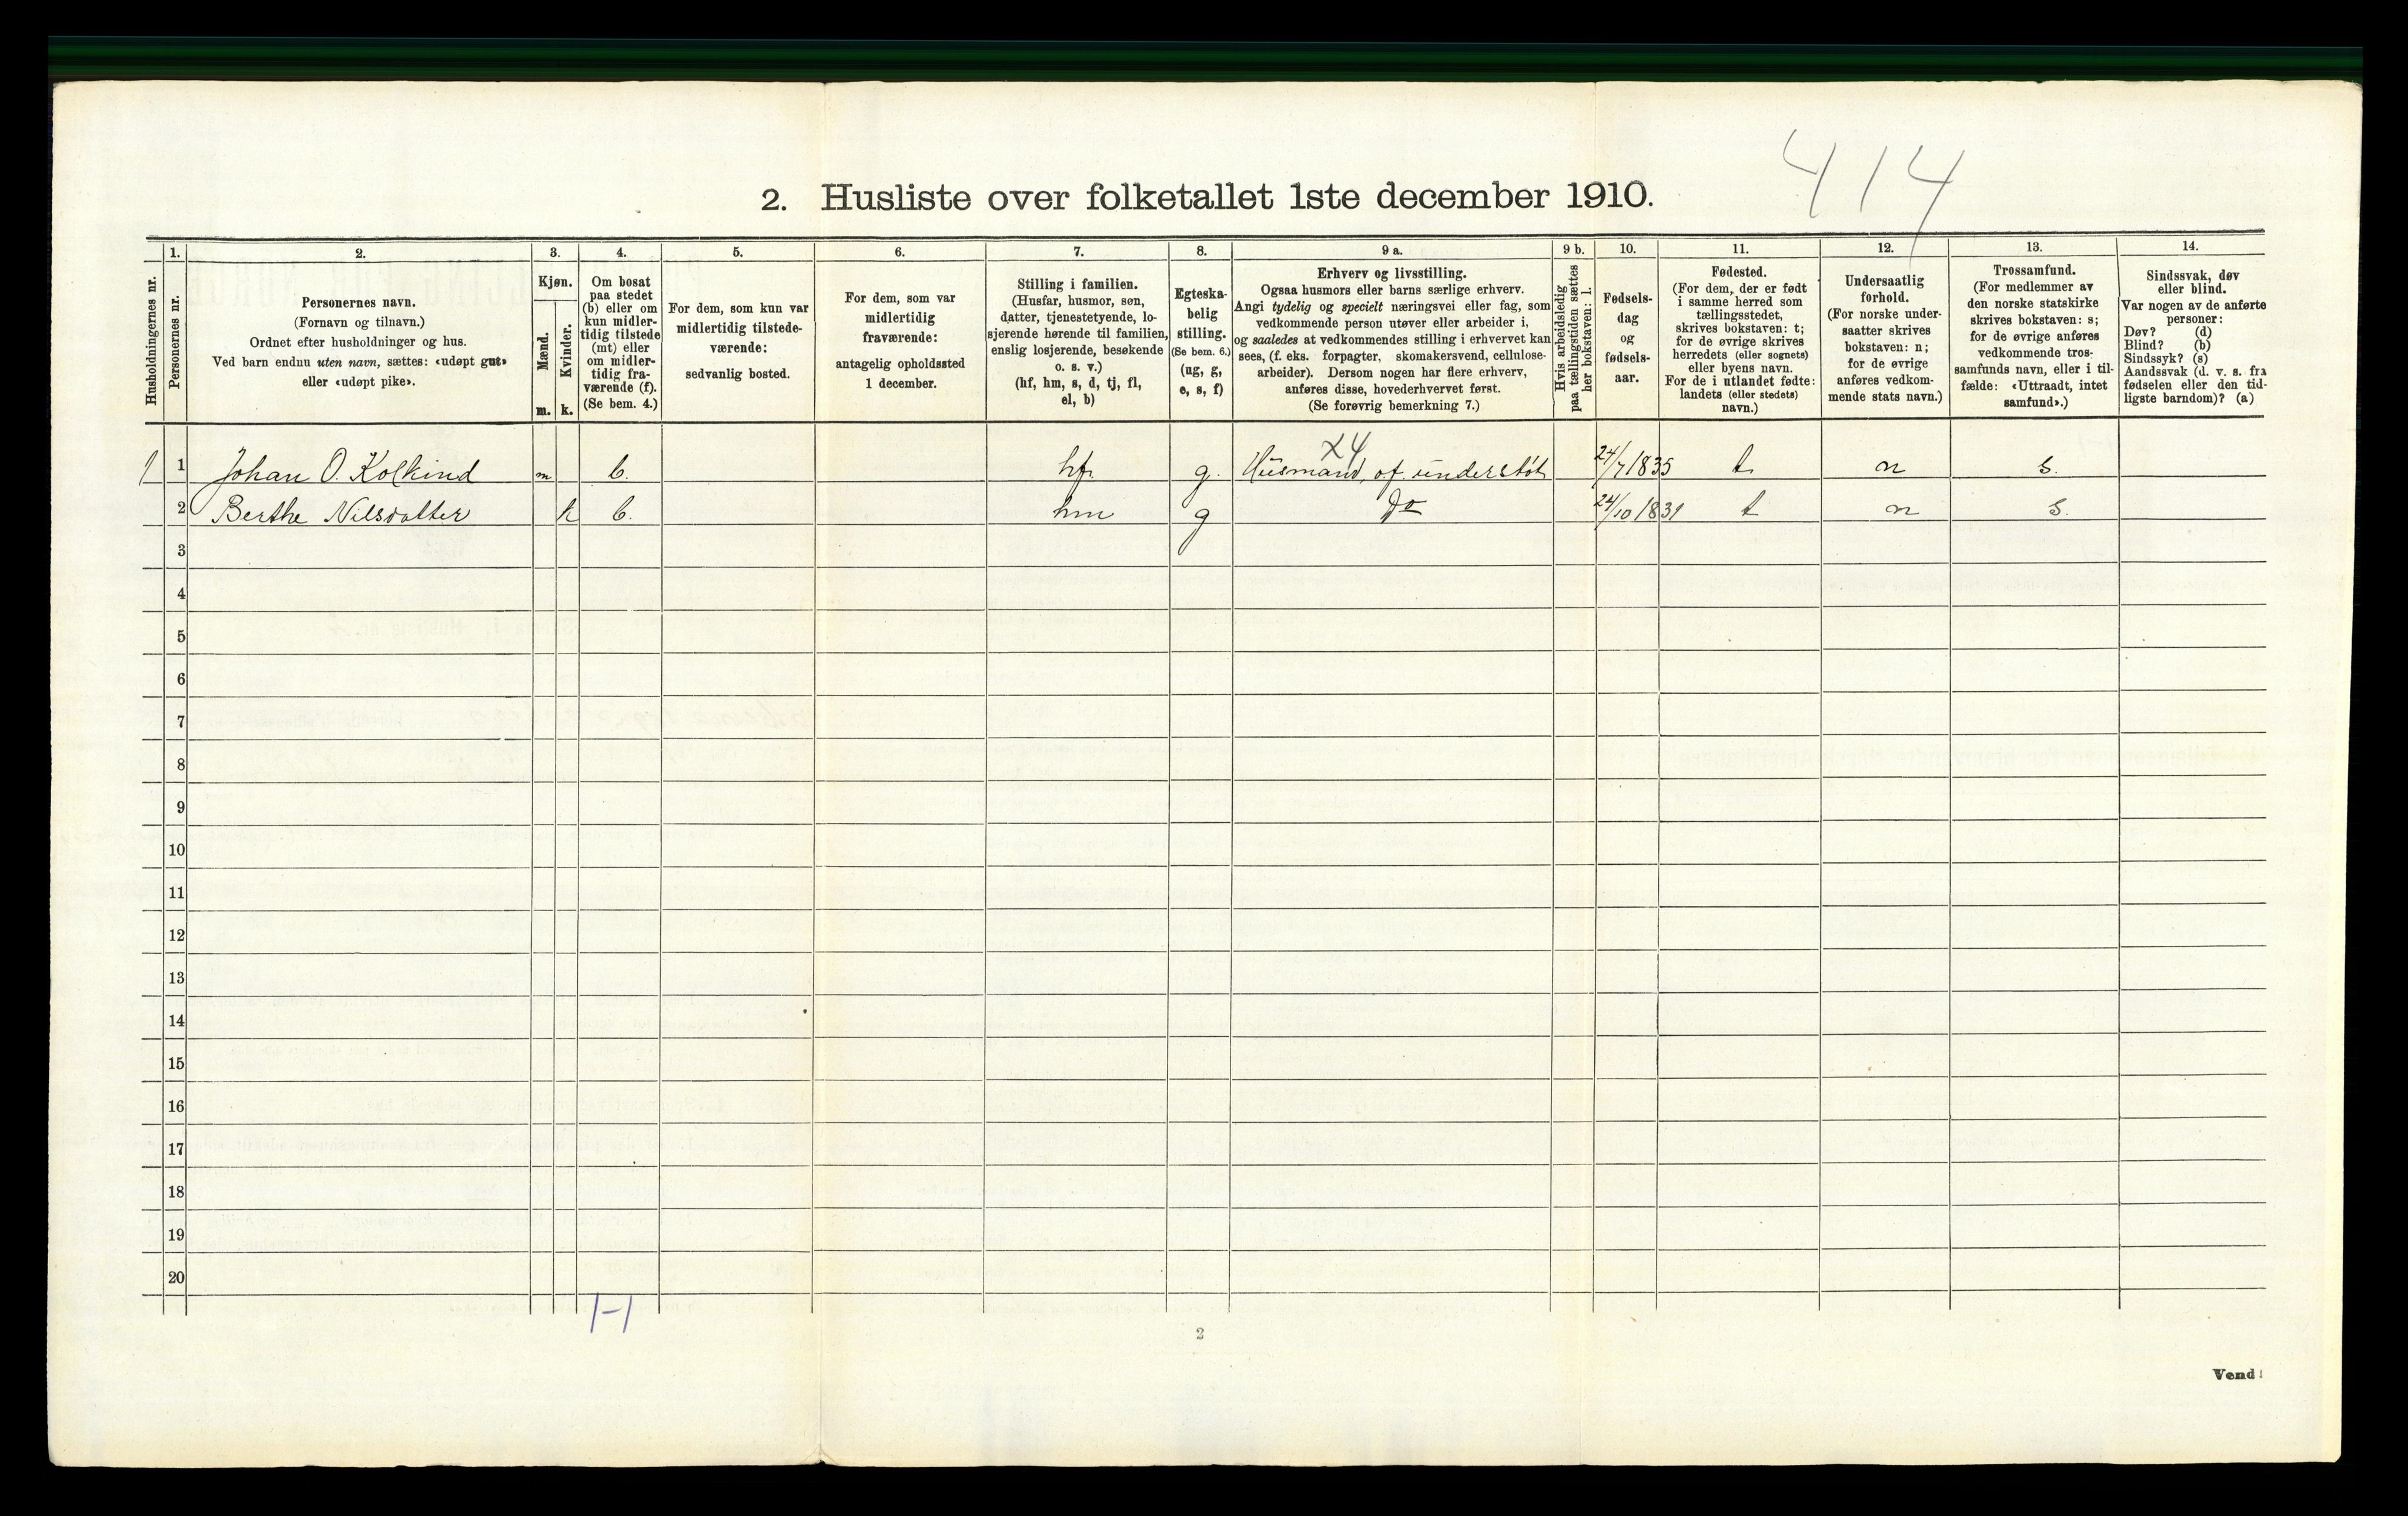 414
2. Husliste over folketallet 1ste december 1910.
1. 2. 3. 4. 5. 6. 7. 8. 9 a. 9 b. 10. 11. 12. 13. 14.
Husholdningernes nr.
Personernes nr.
Personernes navn.
(Fornavn og tilnavn.)
Ordnet efter husholdninger og hus.
Ved barn endnu uten navn, sættes: «udøpt gut»
eller «udøpt pike».
Kjøn.
Mænd.
Kvinder.
m. k.
Om bosat
paa stedet
(b) eller om
kun midler-
tidig tilstede
(mt) eller
om midler-
tidig fra-
værende (f).
(Se bem. 4.)
For dem, som kun var
midlertidig tilstede-
værende:
sedvanlig bosted.
For dem, som var
midlertidig
fraværende:
antagelig opholdssted
1 december.
Stilling i familien.
(Husfar, husmor, søn,
datter, tjenestetyende, lo-
sjerende hørende til familien,
enslig losjerende, besøkende
o. s. v.)
(hf, hm, s, d, tj, fl,
el, b)
Egteska-
belig
stilling.
(Se bem. 6.)
(ug, g,
e, s, f)
Erhverv og livsstilling.
Ogsaa husmors eller barns særlige erhverv.
Angi tydelig og specielt næringsvei eller fag, som
vedkommende person utøver eller arbeider i,
og saaledes at vedkommendes stilling i erhvervet kan
sees, (f. eks. forpagter, skomakersvend, cellulose-
arbeider). Dersom nogen har flere erhverv,
anføres disse, hovederhvervet først.
(Se forøvrig bemerkning 7.)
Hvis arbeidsledig
paa tællingstiden sættes
her bokstaven: l.
Fødsels-
dag
og
fødsels-
aar.
Fødested.
(For dem, der er født
i samme herred som
tællingsstedet,
skrives bokstaven: t;
for de øvrige skrives
herredets (eller sognets)
eller byens navn.
For de i utlandet fødte:
landets (eller stedets)
navn.)
Undersaatlig
forhold.
(For norske under-
saatter skrives
bokstaven: n;
for de øvrige
anføres vedkom-
mende stats navn.)
Trossamfund.
(For medlemmer av
den norske statskirke
skrives bokstaven: s;
for de øvrige anføres
vedkommende tros-
samfunds navn, eller i til-
fælde: «Uttraadt, intet
samfund».)
Sindssvak, døv
eller blind.
Var nogen av de anførte
personer:
Døv? (d)
Blind? (b)
Sindssyk? (s)
Aandssvak (d. v. s. fra
fødselen eller den tid-
ligste barndom)? (a)
X4
1 1 Johan O. Kolkind m b. hf. g. Husmand, of. understøt 24/7 1835 t. n s.
2 Berthe Nilsdatter k b. hm g Do 24/10 1831 t n s.
3
4
5
6
7
8
9
10
11
12
13
14
15
16
17
18
19
20
1-1
2
Vend!